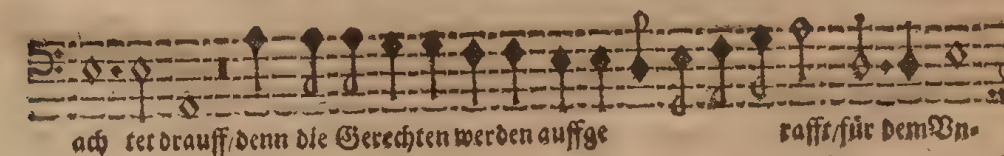 ach ter drauff/denn die Gerechten werden auffge rafft/für dem Vn-